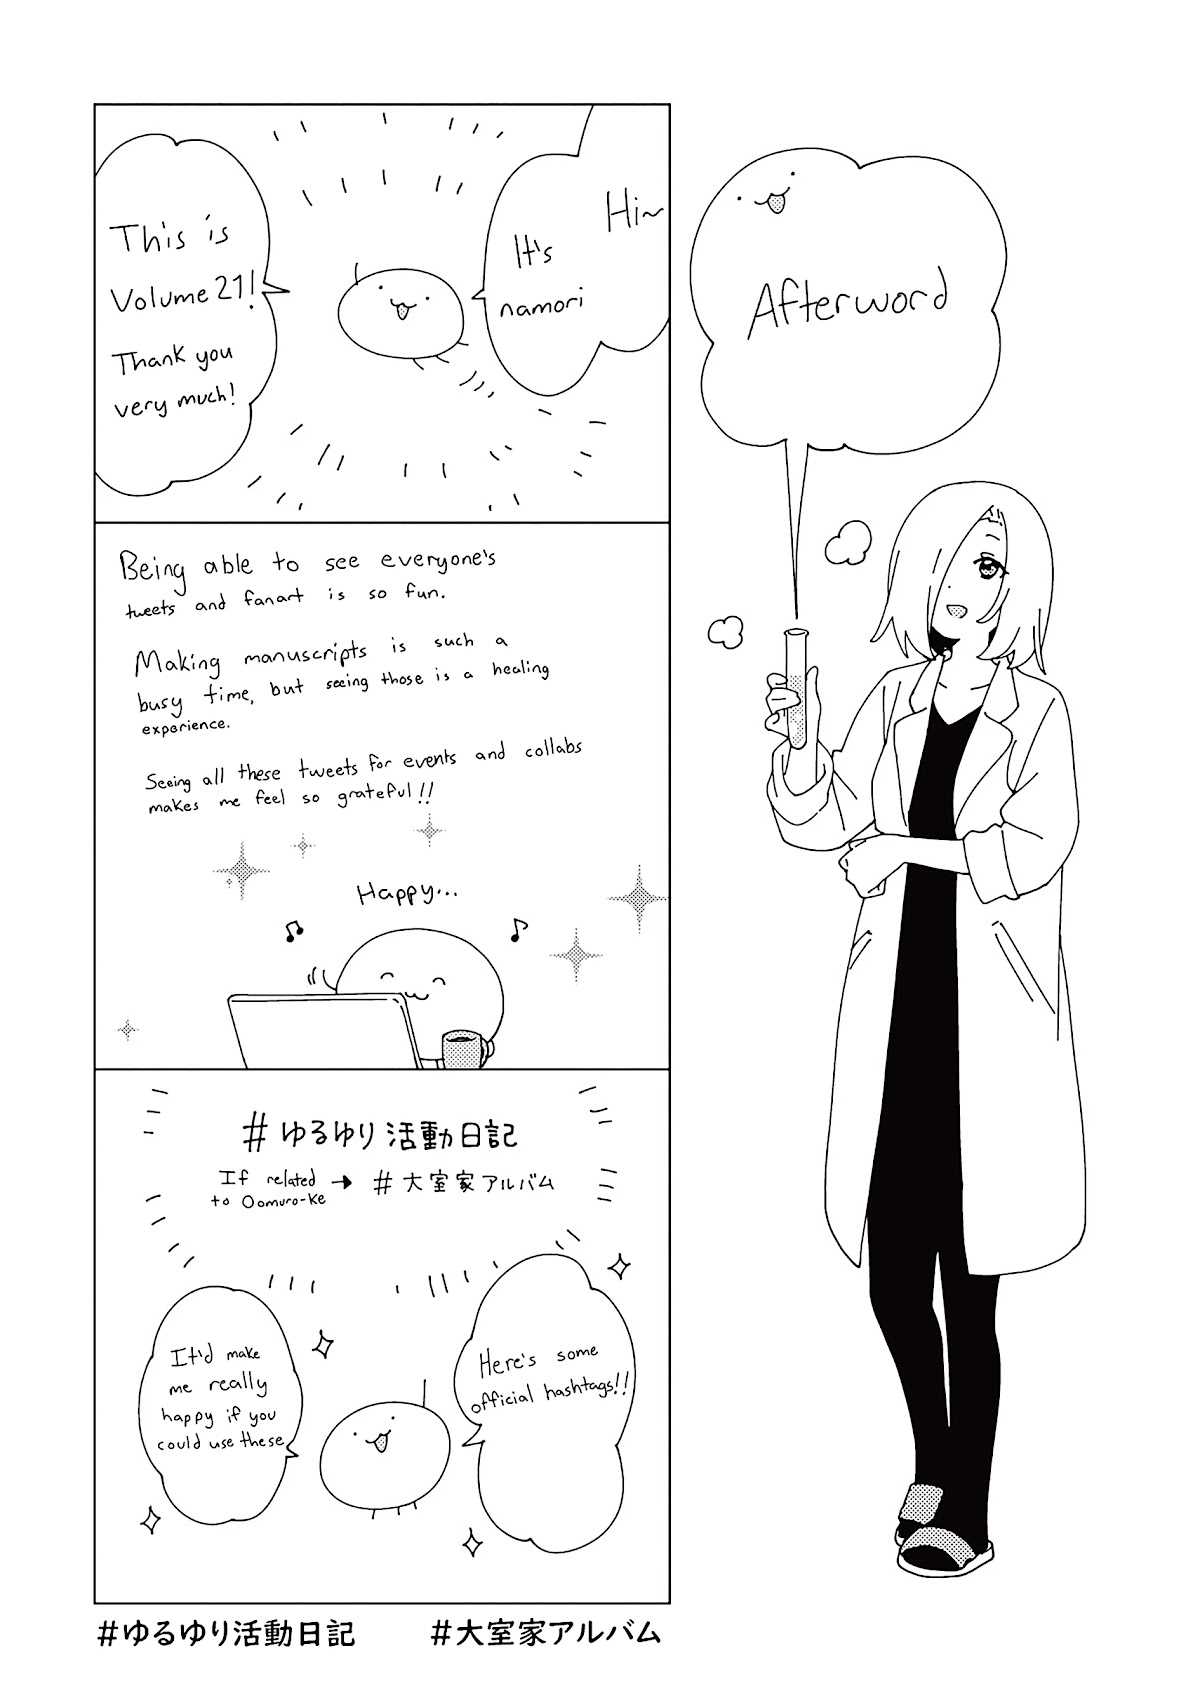 Afterword
Hi~
It's
namori
This is
Volume 21!
Thank you
very much!
Being able to see everyone's
tweets and fanart is so fun.
Making manuscripts is such a
busy time, but seeing those is a healing
experience.
Seeing all these tweets for events and collabs
makes me feel so grateful!!
Happy...
#ゆるゆり活動日記
If related
to Oomuro-Ke → #大室家アルバム
Here's some
official hashtags!!
It'd make
me really
happy if you
could use these
#ゆるゆり活動日記 #大室家アルバム